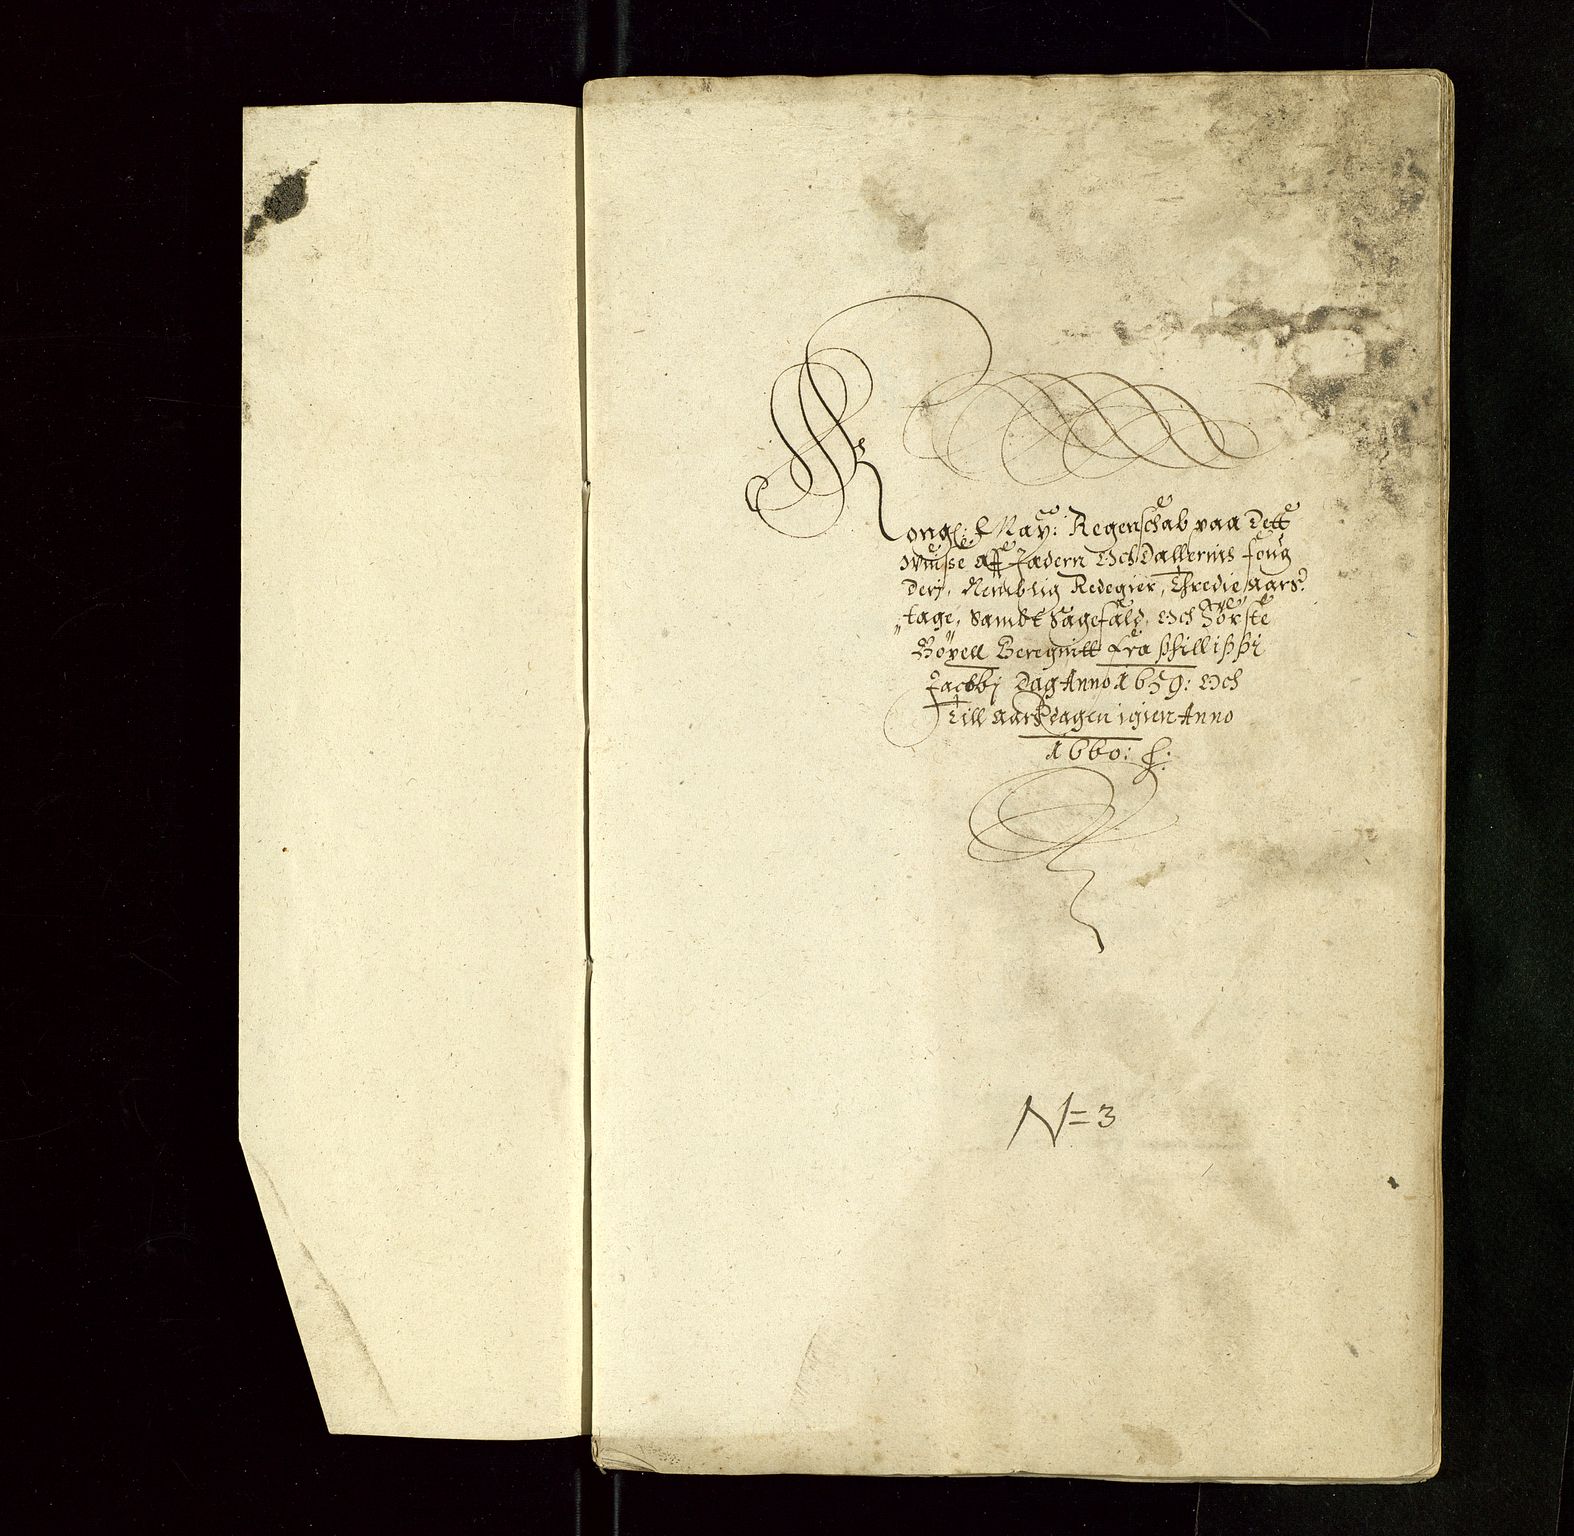 Kongl: May: Regenschab paa Dett
Wuisse aff Jædern och Dallernis foug
derj, Nemblig Ledegier, Thredie aars„
„tage, Sambt Sagefald, och Første
Bøxell Beregnitt fra Phillippi
Jacobj Dag Anno 1659: och
Till aarsdagen igien Anno
1660:
N=3